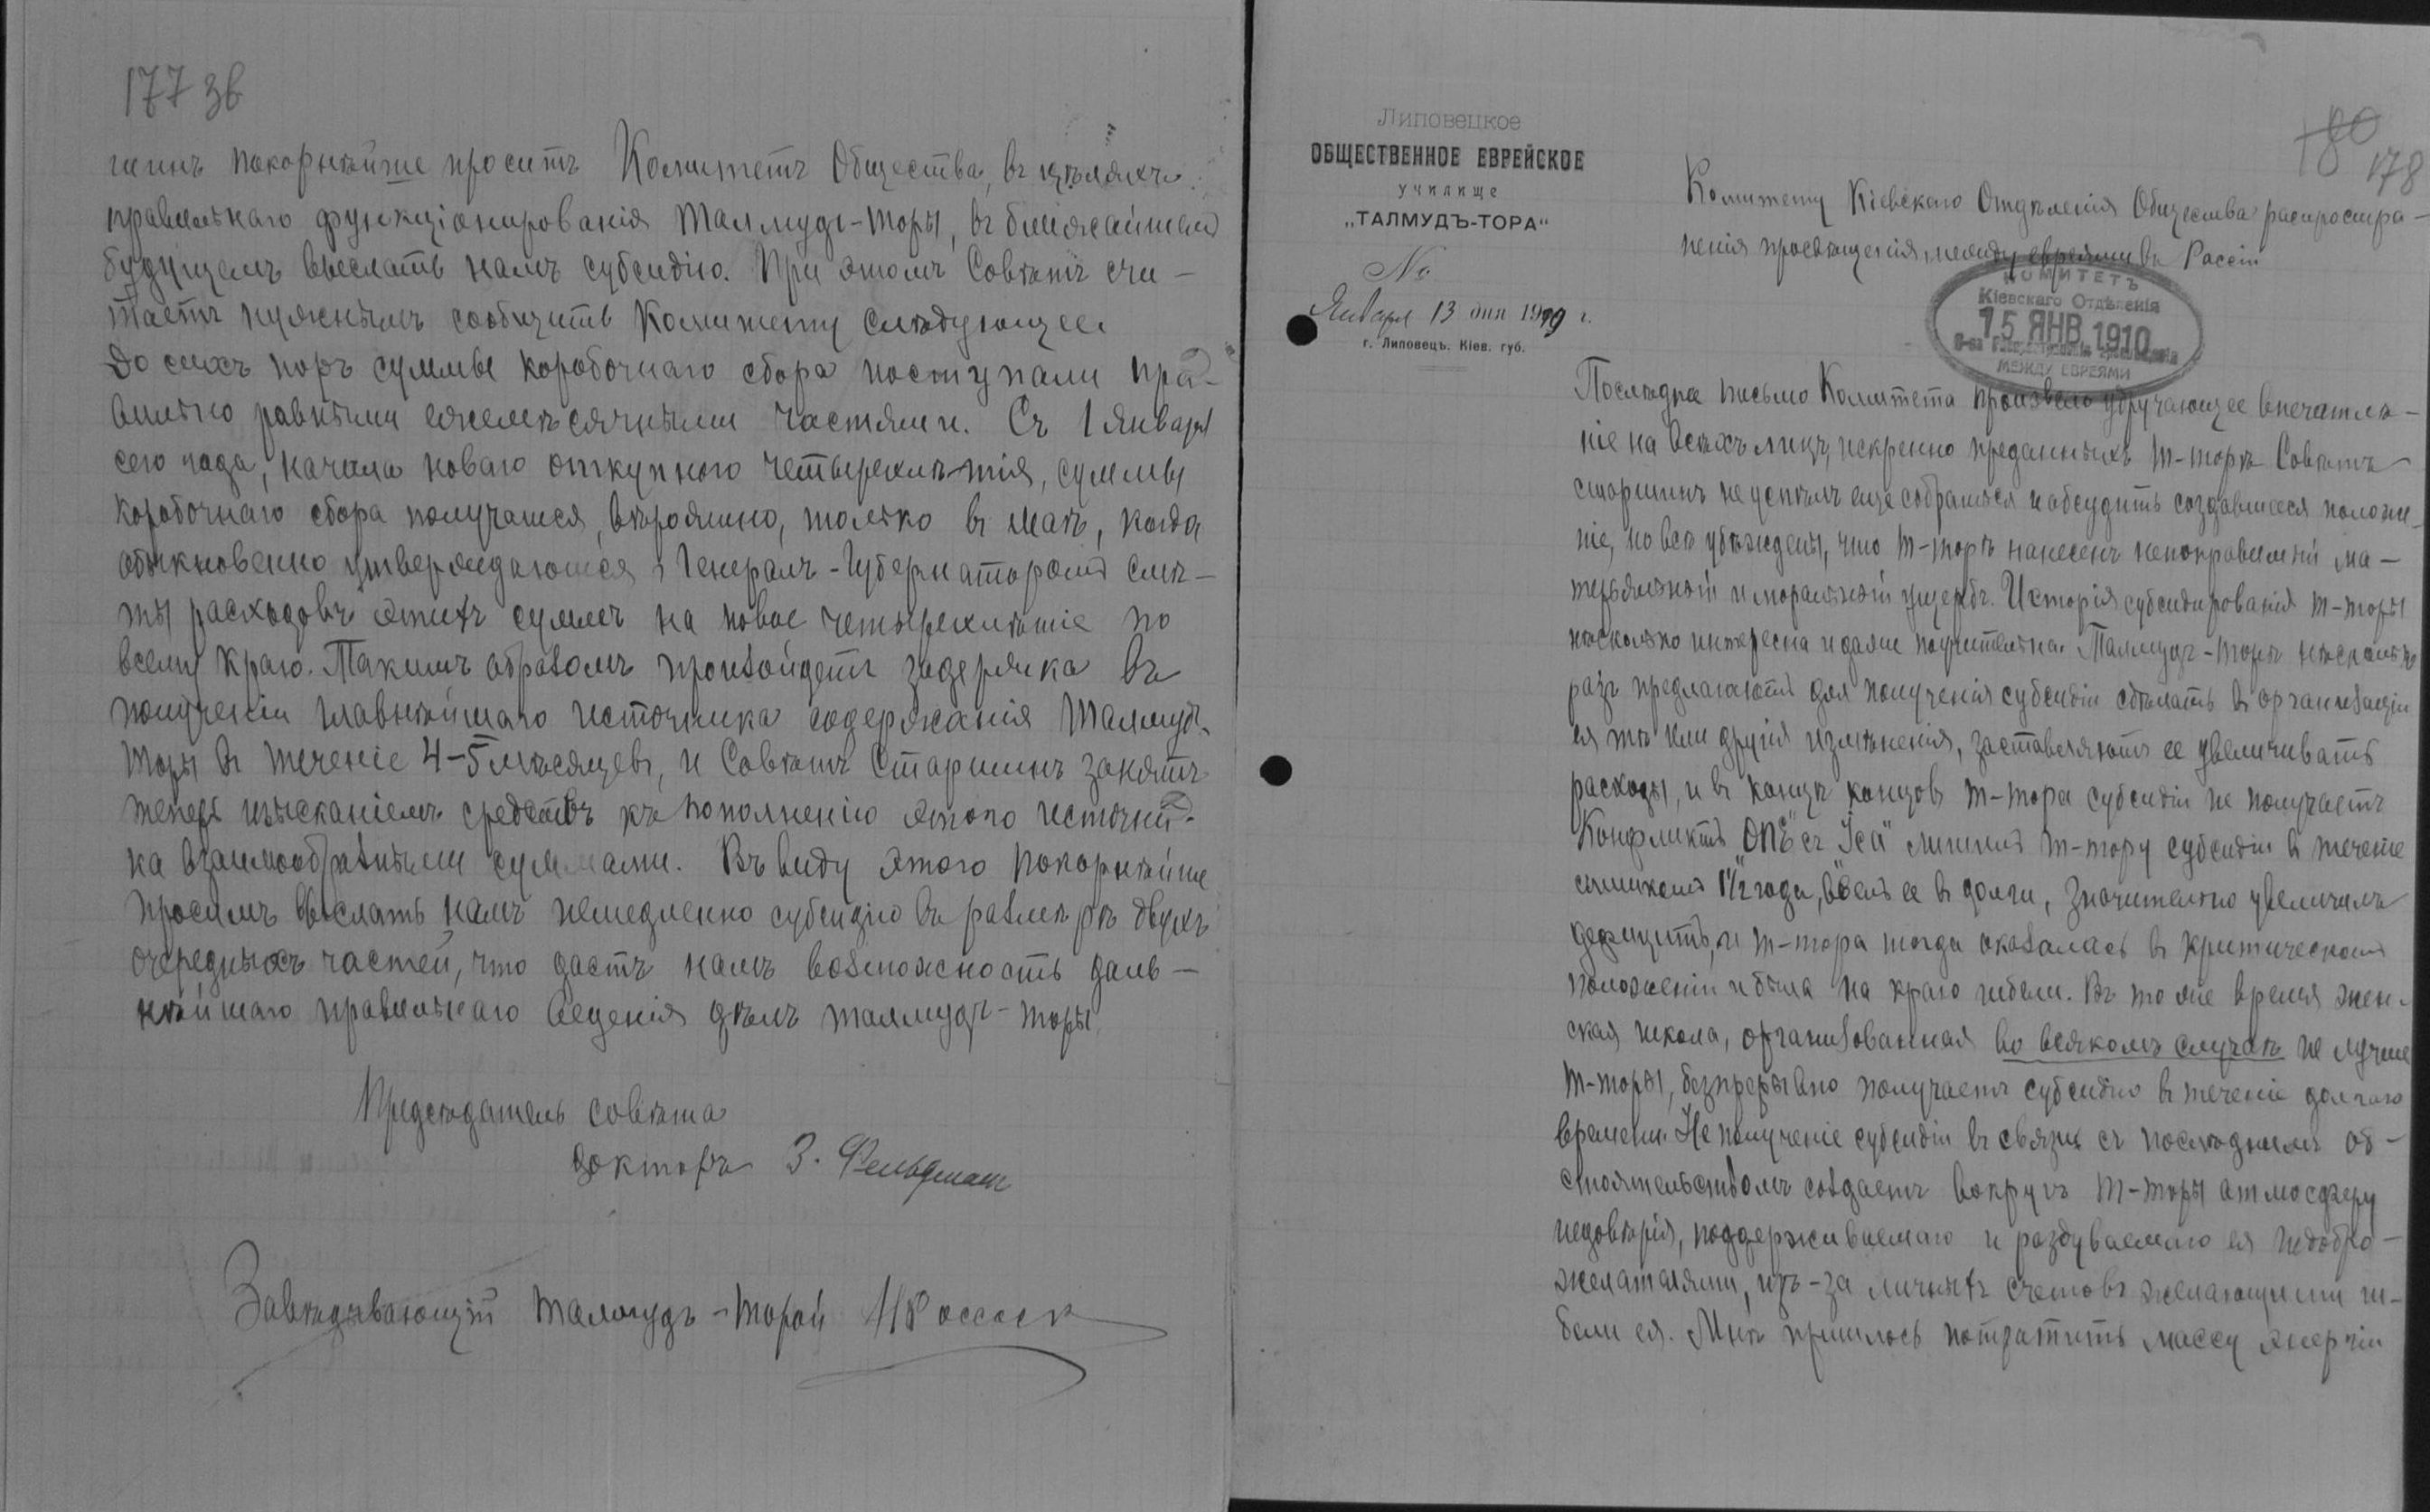 177 зв
шинъ покорнѣйше проситъ Комитетъ Общества, въ цѣляхъ
правильнаго функціонированія Талмудъ-Торы, въ ближайшемъ
будущемъ выслать намъ субсидію. При этомъ Совѣтъ счи-
таетъ нужнымъ сообщить Комитету слѣдующее.
До сихъ поръ суммы коробочнаго сбора поступали пра-
вильно равными ежемѣсячными частями. Съ 1 января
сего года, начала новаго откупного четырехлѣтія, суммы
коробочнаго сбора получатся, вѣроятно, только въ маѣ, когда
обыкновенно утверждаются Генералъ-Губернаторомъ смѣ-
ты расходовъ этихъ суммъ на новое четырехлѣтіе по
всему краю. Такимъ образомъ произойдетъ задержка въ
полученіи главнѣйшаго источника содержанія Талмудъ-
Торы въ теченіе 4-5 мѣсяцевъ, и Совѣтъ Старшинъ занятъ
теперь изысканіемъ средствъ къ пополненію этого источни-
ка взаимообразными суммами. Въ виду этого покорнѣйше
просимъ выслать намъ немедленно субсидію въ размѣрѣ двухъ
очередныхъ частей, что дастъ намъ возможность даль-
нѣйшаго правильнаго веденія дѣлъ талмудъ-торы.
Предсѣдатель совѣта
докторъ З. Фельдман
Завѣдывающій Талмудъ-Торой
Липовецкое
ОБЩЕСТВЕННОЕ ЕВРЕЙСКОЕ
училище
„ТАЛМУДЪ-ТОРА“
№
Января 13 дня 1910 г.
г. Липовецъ. Кіев. губ.
180
178
Комитету Кіевскаго Отдѣленія Общества распростра-
ненія просвѣщенія между евреями въ Россіи
КОМИТЕТЪ
Кіевскаго Отдѣленія
15 ЯНВ 1910
МЕЖДУ ЕВРЕЯМИ
Послѣднее письмо Комитета произвело удручающее впечатлѣ-
ніе на всѣхъ лицъ, искренно преданныхъ т-торѣ. Совѣтъ
старшинъ не успѣлъ еще собраться и обсудить создавшееся положе-
ніе, но всѣ убѣждены, что т-торѣ нанесенъ непоправимый ма-
терьяльный и моральный ущербъ. Исторія субсидированія т-торы
нѣсколько интересна и даже поучительна. Талмудъ-торѣ нѣсколько
разъ предлагаютъ для полученія субсидіи сдѣлать въ организаціи
ея тѣ или другія измѣненія, заставляютъ ее увеличивать
расходы, и въ концѣ концовъ т-тора субсидіи не получаетъ.
Конфликтъ „ОПЕ“ съ „Іса“ лишилъ т-тору субсидіи въ теченіе
слишкомъ 1½ года, ввелъ ее въ долги, значительно увеличилъ
дефицитъ, и т-тора тогда оказалась въ критическомъ
положеніи и была на краю гибели. Въ то же время жен-
ская школа, организованная во всякомъ случаѣ не лучше
т-торы, безпрерывно получаетъ субсидію въ теченіе долгаго
времени. Неполученіе субсидіи въ связи съ послѣднимъ об-
стоятельствомъ создаетъ вокругъ т-торы атмосферу
недовѣрія, поддерживаемаго и раздуваемаго ея недобро-
желателями, изъ-за личныхъ счетовъ желающими ги-
бели ея. Мнѣ пришлось потратить массу энергіи